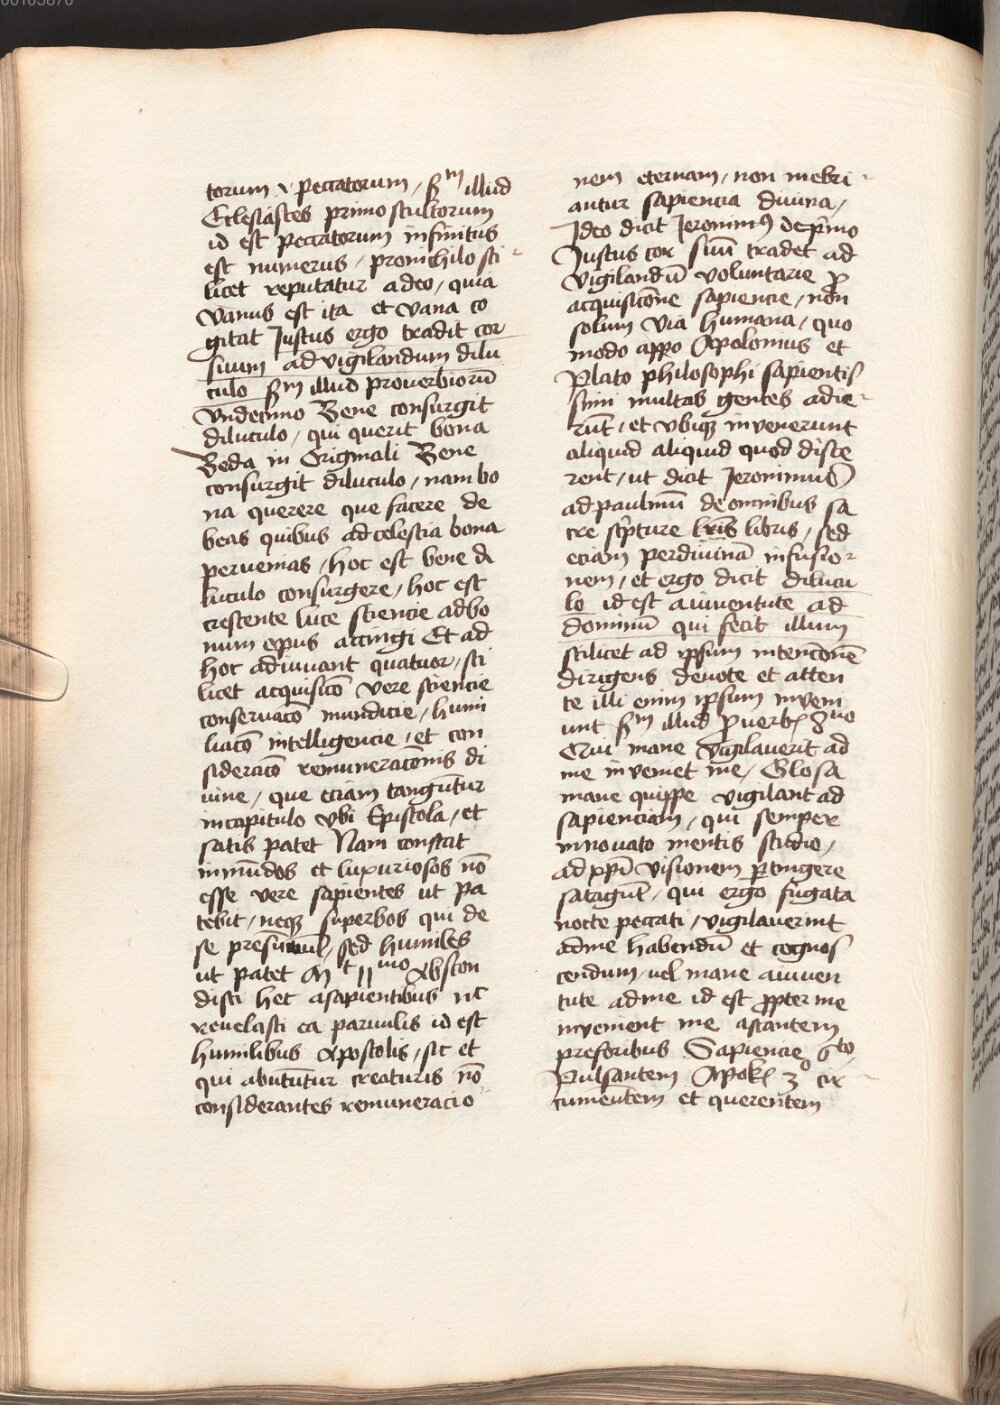 torum & peccatorum / scdm illud
Ecclesiastes primo stultorum
id est peccatorum infinitus
est numerus / pronichilo sci-
licet reputatur a deo / quia
vanus est ita et vana co
gitat Justus ergo tradit cor
suum ad vigilandum dilu
culo scdm illud prouerbiorū
vndecimo Bene consurgit
diluculo / qui querit bona
Beda in Originali Bene
consurgit diluculo / nam bo
na querere que facere de
beas quibus ad celestia bona
peruenias / hoc est bene di
luculo consurgere / hoc est
crescente luce sciencie ad bo
num opus accingi Et ad
hoc adiuuant quatuor / sci
licet acquisicō vere sciencie
conseruacō mundicie / humi
liacō intelligencie / et con
sideracō remuneracōnis di
uine / que eciam tangūtur
in capitulo vbi Epistola / et
satis patet Nam constat
inmūdos et luxuriosos nō
esse vere sapientes ut pa
tebit / neqʒ superbos qui de
se presūmūt / sed humiles
ut patet Mt 11mo Abscon
disti hec a sapientibus et
reuelasti ea paruulis id est
humilibus Apostolis / sic et
qui abutūtur creaturis nō
considerantes remuneracio
nem eternam / non inebri-
antur sapiencia diuina /
Ideo dicit Jeronimꝰ de primo
Justus cor suū tradet ad
vigilandū voluntarie pro
acquisicōne sapiencie / non
solum via humana / quo
modo appo Apolonius et
Plato philosophi sapientis
simi multas gentes adie-
rūt / et vbiqʒ invenerunt
aliquid aliquid quod disce
rent / ut dicit Jeronimus
ad paulinū de omnibus sa
cre scpture libris / sed
eciam per diuinā infusio-
nem / et ergo dicit dilucu
lo id est a iuuentute ad
dominū qui fecit illum
scilicet ad ipsum intencōnē
dirigens deuote et atten
te illi enim ipsum inveni
unt scdm illud Prouerb 8uo
Qui mane vigilauerit ad
me inveniet me / Glosa
mane quippe vigilant ad
sapienciam / qui semper
innouato mentis studio /
ad xpi visionem pertingere
satagūt / qui ergo fugata
nocte peccati / vigilauerint
ad me habendū et cognos
cendum / vel mane a iuuen
tute ad me id est propter me
invenient me astantem
preforibus Sapiencie 6to
Pulsantem Apok 3o cir
cumeūtem et querentem